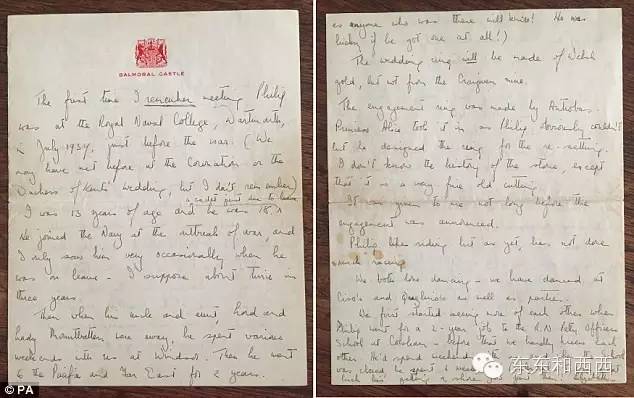 BALMORAL CASTLE
The first time I remember meeting Philip
was at the Royal Naval College, Dartmouth,
in July 1939, just before the war. (We
may have met before at the Coronation or the
Duchess of Kent's wedding, but I don't remember)
a cadet just due to leave
I was 13 years of age and he was 18
He joined the Navy at the outbreak of war, and
I only saw him very occasionally when he
was on leave - I suppose about twice in
three years.
Then when his uncle and aunt, Lord and
Lady Mountbatten were away, he spent various
weekends with us at Windsor. Then he went
to the Pacific and Far East for 2 years.
PA
as anyone who was there will know! He was
lucky if he got one at all!)
The wedding ring will be made of Welsh
gold, but not from the Craigwen mine.
The engagement ring was made by Antrobus.
Princess Alice took it in as Philip obviously couldn't
but he designed the ring for the re-setting.
I don't know the history of the stone, except
that it is a very fine old cutting
It was given to me not long before the
engagement was announced.
Philip likes riding but as yet, has not done
much racing
We both love dancing - we have danced at
Ciro's and Quaglino's as well as parties.
We first started seeing more of each other when
Philip went for a 2-year job to the R.N. Petty Officers
School at Corsham - before that we hardly knew each
other. He'd spend weekends
was closed he spent 6 weeks
东东和西西